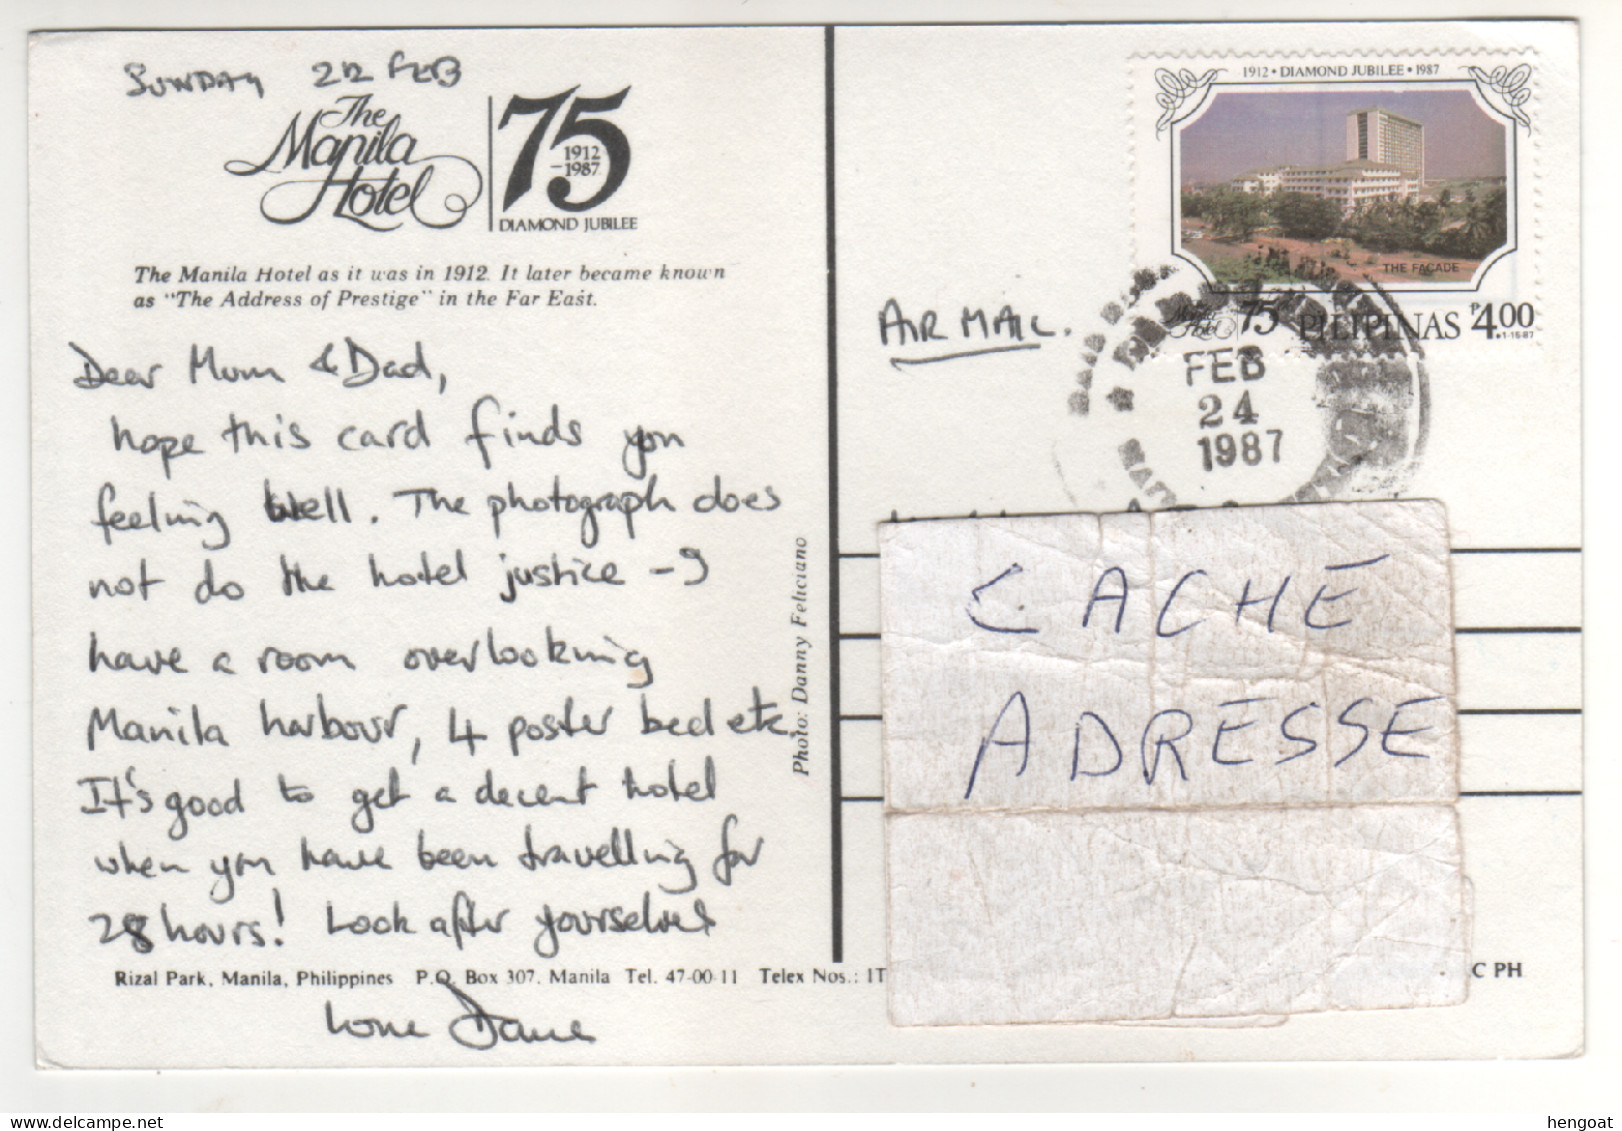 SUNDAY 22 FEB
The
Manila
Hotel
75
1912
-1987
DIAMOND JUBILEE
The Manila Hotel as it was in 1912. It later became known
as "The Address of Prestige" in the Far East.
Dear Mum & Dad,
hope this card finds you
feeling well. The photograph does
not do the hotel justice - I
have a room overlooking
Manila harbour, 4 poster bed etc.
It's good to get a decent hotel
when you have been travelling for
28 hours! Look after yourselves
Rizal Park, Manila, Philippines P.O. Box 307, Manila Tel. 47-00-11 Telex Nos.: IT
C PH
Love Dave
Photo: Danny Feliciano
1912 • DIAMOND JUBILEE • 1987
THE FACADE
Manila
Hotel 75 PILIPINAS P4.00
1-15-87
AIR MAIL.
FEB
24
1987
CACHE
ADRESSE
hengoat